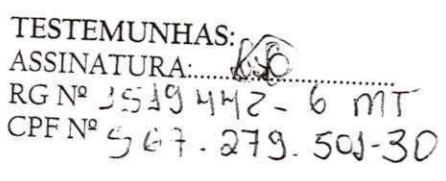 TESTEMUNHAS:
ASSINATURA:..............................
RG Nº 1519442-6 MT
CPF Nº 567.279.501-30